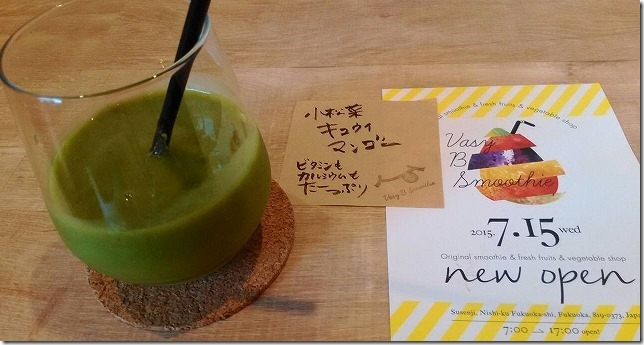 小松菜
キュウイ
マンゴー
ビタミンも
カルシウムも
たーっぷり
Vasy B Smoothie
al smoothie & fresh fruits & vegetable shop
Vasy
B
Smoothie
2015. 7.15 wed
Original smoothie & fresh fruits & vegetable shop
new open
Susenji, Nishi-ku Fukuoka-shi, Fukuoka, 819-0373, Japa
7:00 → 17:00 open!